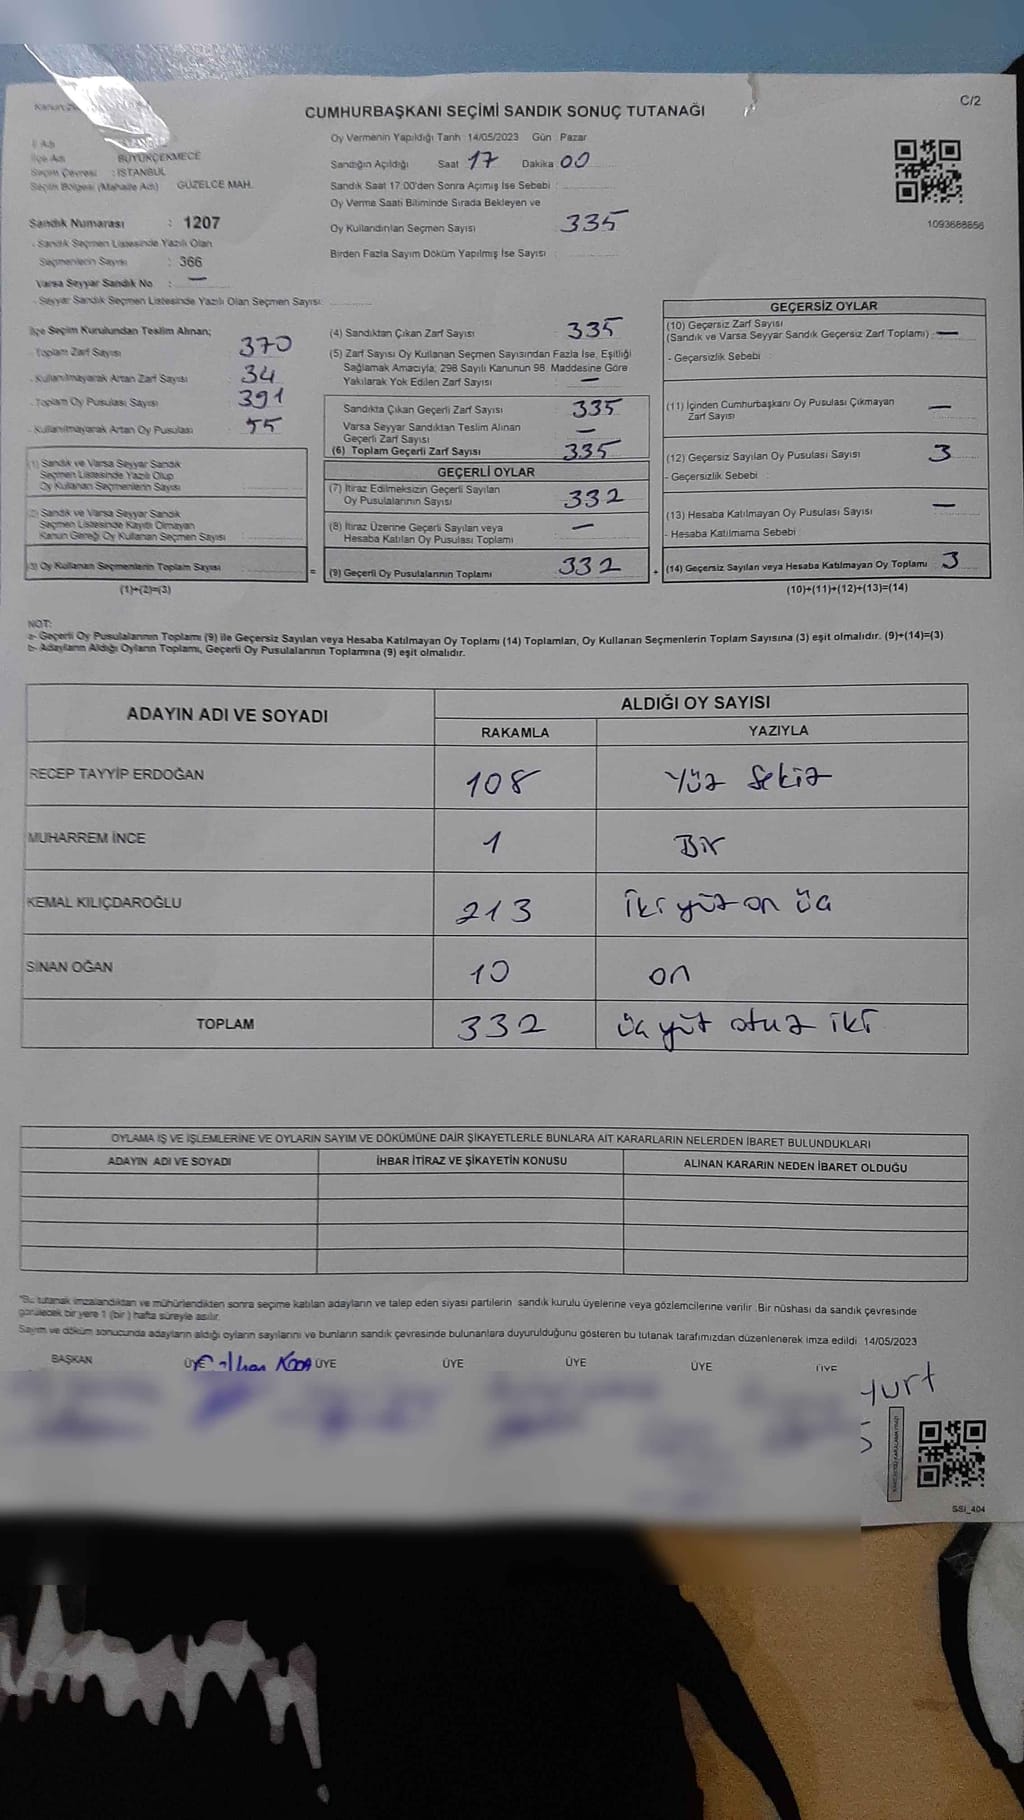 C/2
CUMHURBAŞKANI SEÇİMİ SANDIK SONUÇ TUTANAĞI
İl Adı
İlçe Adı BÜYÜKÇEKMECE
Seçim Çevresi : İSTANBUL
Seçim Bölgesi (Mahalle Adı) GÜZELCE MAH.
Oy Vermenin Yapıldığı Tarih : 14/05/2023 Gün : Pazar
Sandığın Açıldığı Saat 17 Dakika 00
Sandık Saat 17:00'den Sonra Açılmış İse Sebebi :
Oy Verme Saati Bitiminde Sırada Bekleyen ve
Oy Kullandırılan Seçmen Sayısı : 335
Birden Fazla Sayım Döküm Yapılmış İse Sayısı :
1093688856
Sandık Numarası : 1207
- Sandık Seçmen Listesinde Yazılı Olan
Seçmenlerin Sayısı : 366
Varsa Seyyar Sandık No : —
- Seyyar Sandık Seçmen Listesinde Yazılı Olan Seçmen Sayısı:
İlçe Seçim Kurulundan Teslim Alınan;
- Toplam Zarf Sayısı 370
- Kullanılmayarak Artan Zarf Sayısı 34
- Toplam Oy Pusulası Sayısı 391
- Kullanılmayarak Artan Oy Pusulası 55
(1) Sandık ve Varsa Seyyar Sandık
Seçmen Listesinde Yazılı Olup
Oy Kullanan Seçmenlerin Sayısı
(2) Sandık ve Varsa Seyyar Sandık
Seçmen Listesinde Kayıtlı Olmayan
Kanun Gereği Oy Kullanan Seçmen Sayısı
(3) Oy Kullanan Seçmenlerin Toplam Sayısı =
(1)+(2)=(3)
(4) Sandıktan Çıkan Zarf Sayısı 335
(5) Zarf Sayısı Oy Kullanan Seçmen Sayısından Fazla İse, Eşitliği
Sağlamak Amacıyla; 298 Sayılı Kanunun 98. Maddesine Göre
Yakılarak Yok Edilen Zarf Sayısı —
Sandıkta Çıkan Geçerli Zarf Sayısı 335
Varsa Seyyar Sandıktan Teslim Alınan
Geçerli Zarf Sayısı —
(6) Toplam Geçerli Zarf Sayısı 335
GEÇERLİ OYLAR
(7) İtiraz Edilmeksizin Geçerli Sayılan
Oy Pusulalarının Sayısı 332
(8) İtiraz Üzerine Geçerli Sayılan veya
Hesaba Katılan Oy Pusulası Toplamı —
(9) Geçerli Oy Pusulalarının Toplamı 332 +
GEÇERSİZ OYLAR
(10) Geçersiz Zarf Sayısı
(Sandık ve Varsa Seyyar Sandık Geçersiz Zarf Toplamı) —
- Geçersizlik Sebebi :
(11) İçinden Cumhurbaşkanı Oy Pusulası Çıkmayan
Zarf Sayısı —
(12) Geçersiz Sayılan Oy Pusulası Sayısı 3
- Geçersizlik Sebebi :
(13) Hesaba Katılmayan Oy Pusulası Sayısı —
- Hesaba Katılmama Sebebi :
(14) Geçersiz Sayılan veya Hesaba Katılmayan Oy Toplamı 3
(10)+(11)+(12)+(13)=(14)
NOT:
a- Geçerli Oy Pusulalarının Toplamı (9) ile Geçersiz Sayılan veya Hesaba Katılmayan Oy Toplamı (14) Toplamları, Oy Kullanan Seçmenlerin Toplam Sayısına (3) eşit olmalıdır. (9)+(14)=(3)
b- Adayların Aldığı Oyların Toplamı, Geçerli Oy Pusulalarının Toplamına (9) eşit olmalıdır.
ADAYIN ADI VE SOYADI ALDIĞI OY SAYISI
RAKAMLA YAZIYLA
RECEP TAYYİP ERDOĞAN 108 Yüz Sekiz
MUHARREM İNCE 1 Bir
KEMAL KILIÇDAROĞLU 213 İki yüz on üç
SİNAN OĞAN 10 on
TOPLAM 332 üç yüz otuz iki
OYLAMA İŞ VE İŞLEMLERİNE VE OYLARIN SAYIM VE DÖKÜMÜNE DAİR ŞİKAYETLERLE BUNLARA AİT KARARLARIN NELERDEN İBARET BULUNDUKLARI
ADAYIN ADI VE SOYADI İHBAR İTİRAZ VE ŞİKAYETİN KONUSU ALINAN KARARIN NEDEN İBARET OLDUĞU
*Bu tutanak imzalandıktan ve mühürlendikten sonra seçime katılan adayların ve talep eden siyasi partilerin sandık kurulu üyelerine veya gözlemcilerine verilir. Bir nüshası da sandık çevresinde
görülecek bir yere 1 (bir) hafta süreyle asılır.
Sayım ve döküm sonucunda adayların aldığı oyların sayılarını ve bunların sandık çevresinde bulunanlara duyurulduğunu gösteren bu tutanak tarafımızdan düzenlenerek imza edildi. 14/05/2023
BAŞKAN ÜYE ÜYE ÜYE ÜYE ÜYE ÜYE
yurt
SSI_404